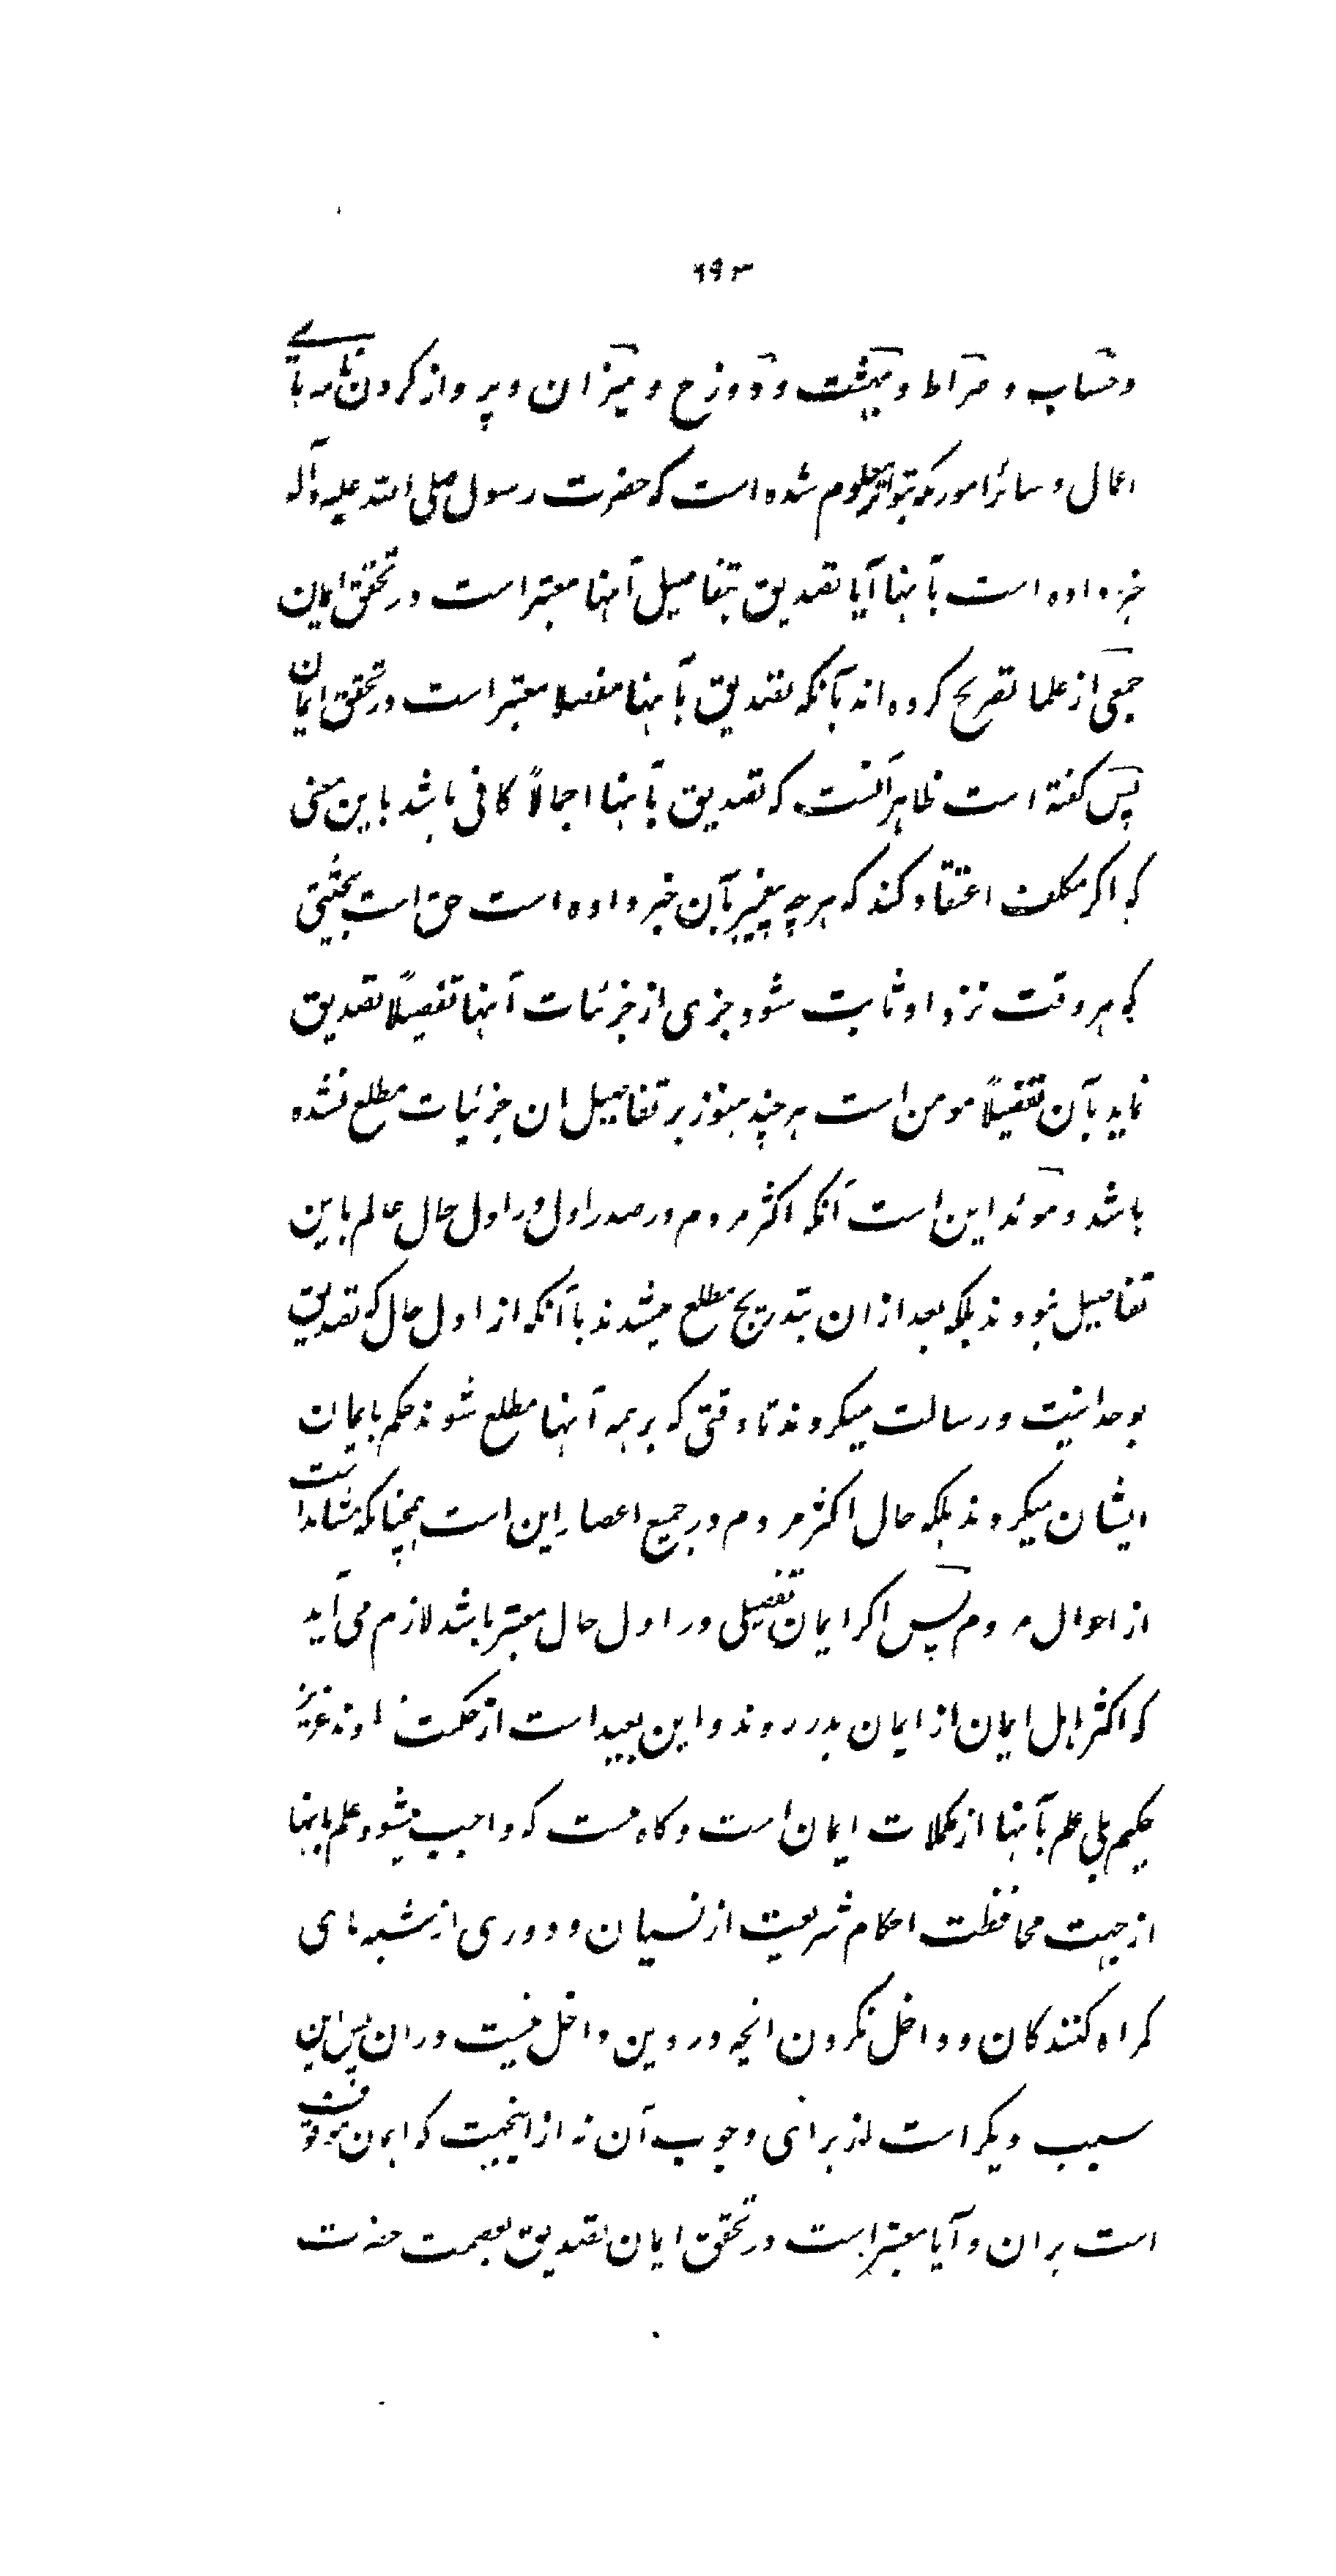 ٦٩٣
و حساب و صراط و بهشت و دوزخ و میزان و پرواز کردن نامه‌های
اعمال و سائر امور که بتواتر معلوم شده است که حضرت رسول صلی الله علیه و آله
خبر داده است بآنها آیا تصدیق بتفاصیل آنها معتبر است در تحقق ایمان
جمعی از علما تصریح کرده‌اند بآنکه تصدیق بآنها مفصلا معتبر است در تحقق ایمان
پس گفته است ظاهر آنست که تصدیق بآنها اجمالاً کافی باشد باین معنی
که اکر مکلف اعتقاد کند که هر چه پیغمبر بآن خبر داده است حق است بحیثیتی
که هر وقت نزد او ثابت شود جزی از جزئیات آنها تفصیلاً تصدیق
نماید بآن تفصیلاً مومن است هر چند هنوز بر تفاصیل ان جزئیات مطلع نشده
باشد و موئد این است آنکه اکثر مردم در صدر اول در اول حال عالم باین
تفاصیل نبودند بلکه بعد از ان بتدریج مطلع میشدند با آنکه از اول حال که تصدیق
بوحدانیت و رسالت میکردند تا وقتی که بر همه آنها مطلع شوند حکم بایمان
ایشان میکردند بلکه حال اکثر مردم در جمیع اعصار این است همچنانکه مشاهد است
از احوال مردم پس اکر ایمان تفصیلی در اول حال معتبر باشد لازم می‌آید
که اکثر اهل ایمان از ایمان بدر روند و این بعید است از حکمت خداوند عزیز
حکیم بلی علم بآنها از مکملات ایمان است و کاه هست که واجب میشود علم بانها
از جهت محافظت احکام شریعت از نسیان و دوری از شبه‌های
کمراه کنندکان و داخل نکردن انچه در دین داخل نیست در ان پس این
سبب دیکر است از برای وجوب آن نه از اینجهت که ایمان موقوف
است بر ان و آیا معتبر است در تحقق ایمان تصدیق بعصمت حضرت